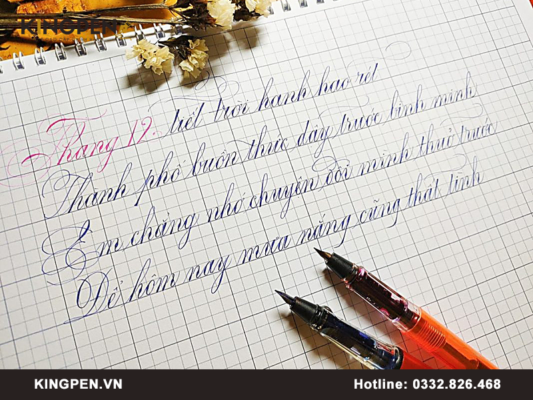 KINGPEN
Tháng 12. tiết trời hanh hao rét
Thành phố buồn thức dậy trước bình minh
Em chẳng nhớ chuyện đôi mình thuở trước
Để hôm nay mưa nắng cũng thất tình
KINGPEN.VN
Hotline: 0332.826.468